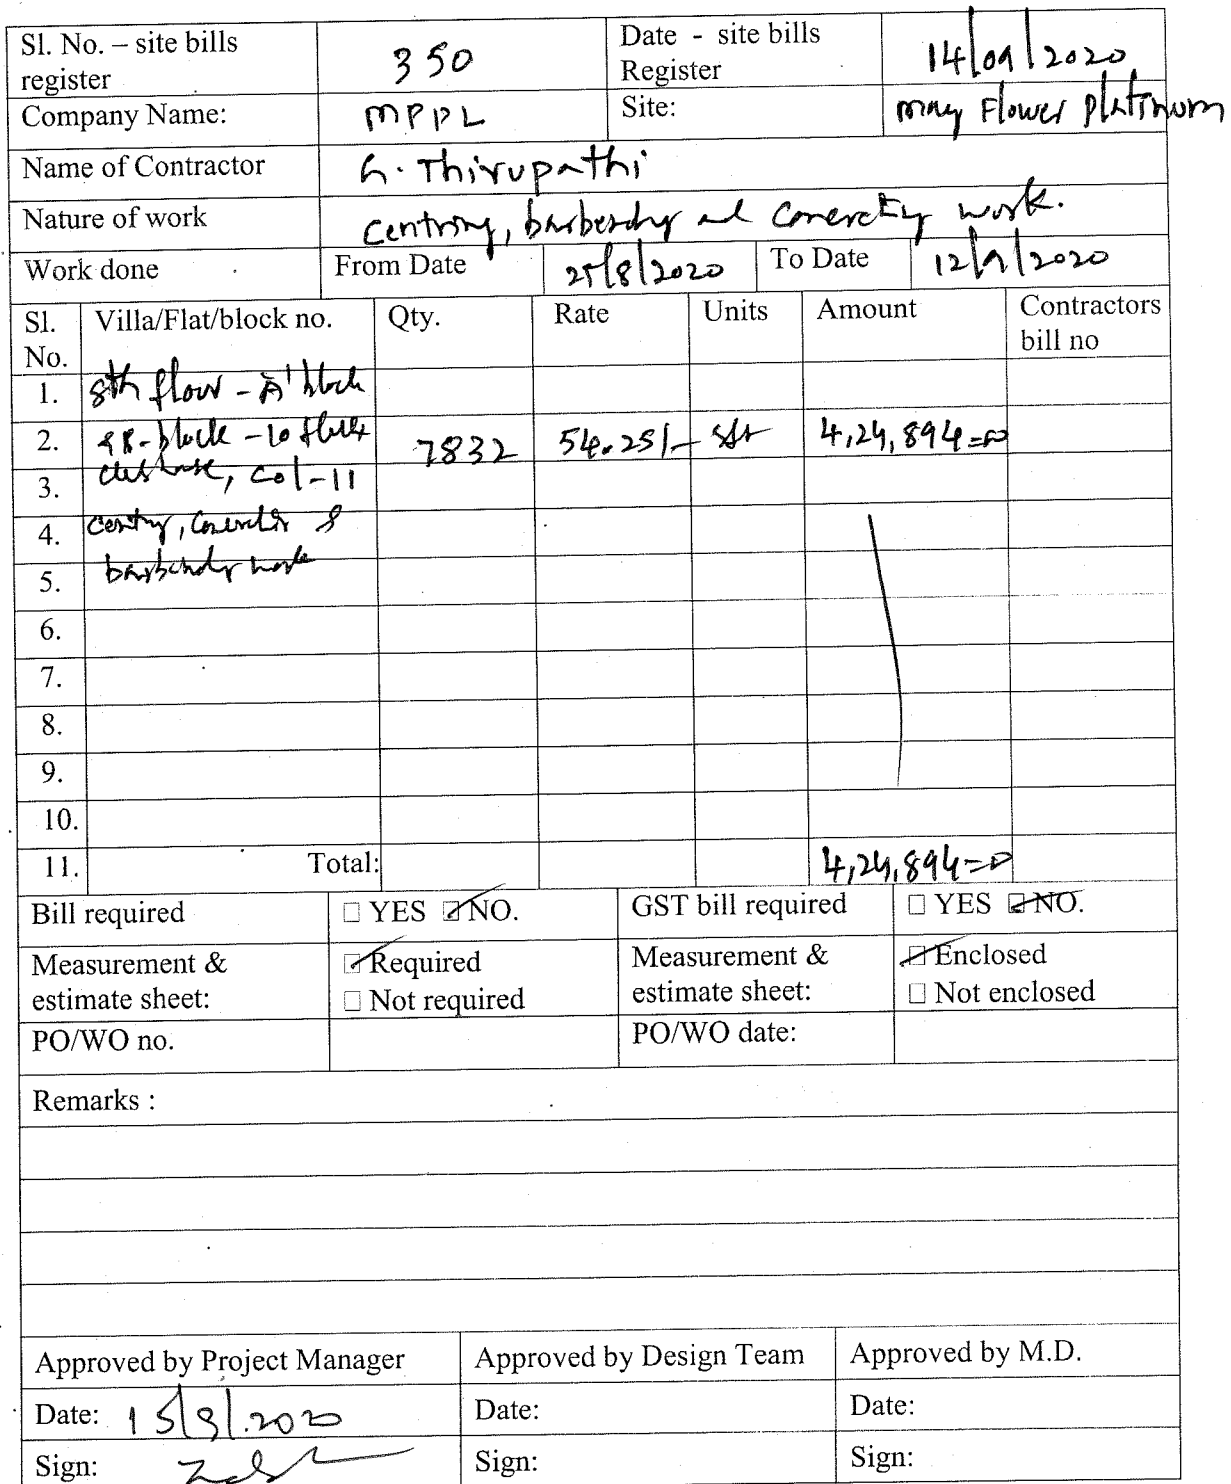 Sl. No. – site bills register 350 Date - site bills Register 14/09/2020
Company Name: MPPL Site: May Flower Platinum
Name of Contractor G. Thirupathi
Nature of work Centring, barbending and concreting work.
Work done From Date 25/8/2020 To Date 12/9/2020
Sl. No. Villa/Flat/block no. Qty. Rate Units Amount Contractors bill no
1. 8th floor - 'A' block
2. block - 10 7832 54.25/- sft 4,24,894=00
3. col-11
4. &
5. barbending work
6.
7.
8.
9.
10.
11. Total: 4,24,894=00
Bill required □ YES ☑ NO. GST bill required □ YES ☑ NO.
Measurement & estimate sheet: ☑ Required □ Not required Measurement & estimate sheet: ☑ Enclosed □ Not enclosed
PO/WO no. PO/WO date:
Remarks :
Approved by Project Manager Approved by Design Team Approved by M.D.
Date: 15/9/.2020 Date: Date:
Sign: Sign: Sign: